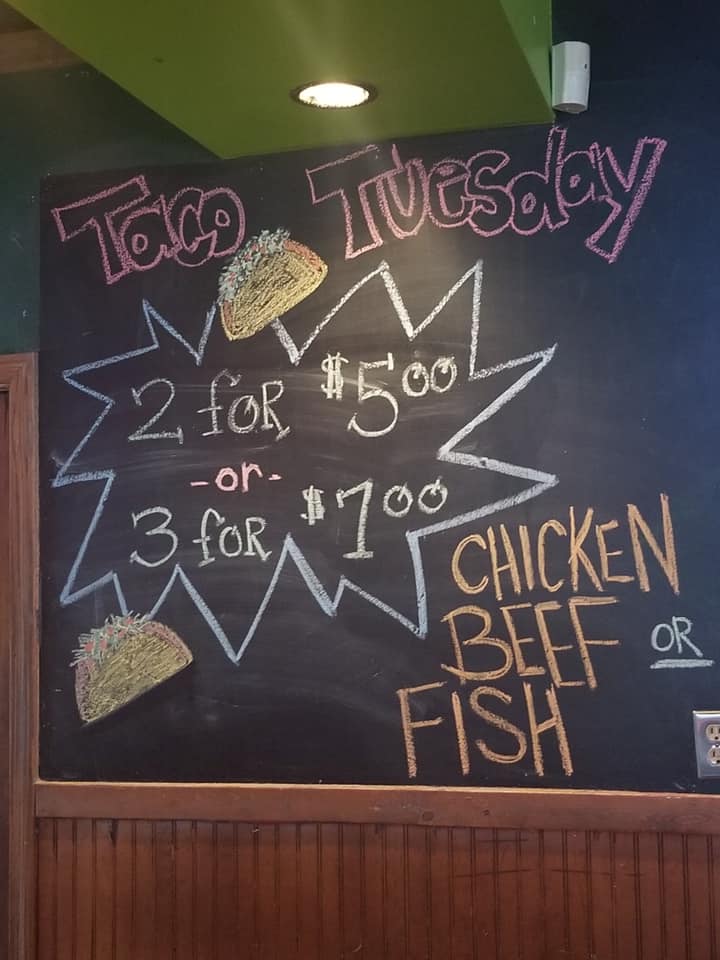 Taco Tuesday
2 for $5.00
-or-
3 for $7.00
CHICKEN
BEEF OR
FISH